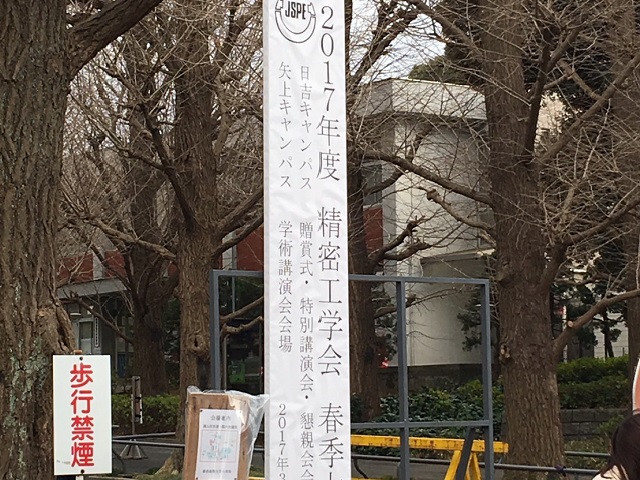 JSPE
2017年度 精密工学会 春季
日吉キャンパス 贈賞式・特別講演会・懇親会会
矢上キャンパス 学術講演会会場 2017年3
歩行禁煙